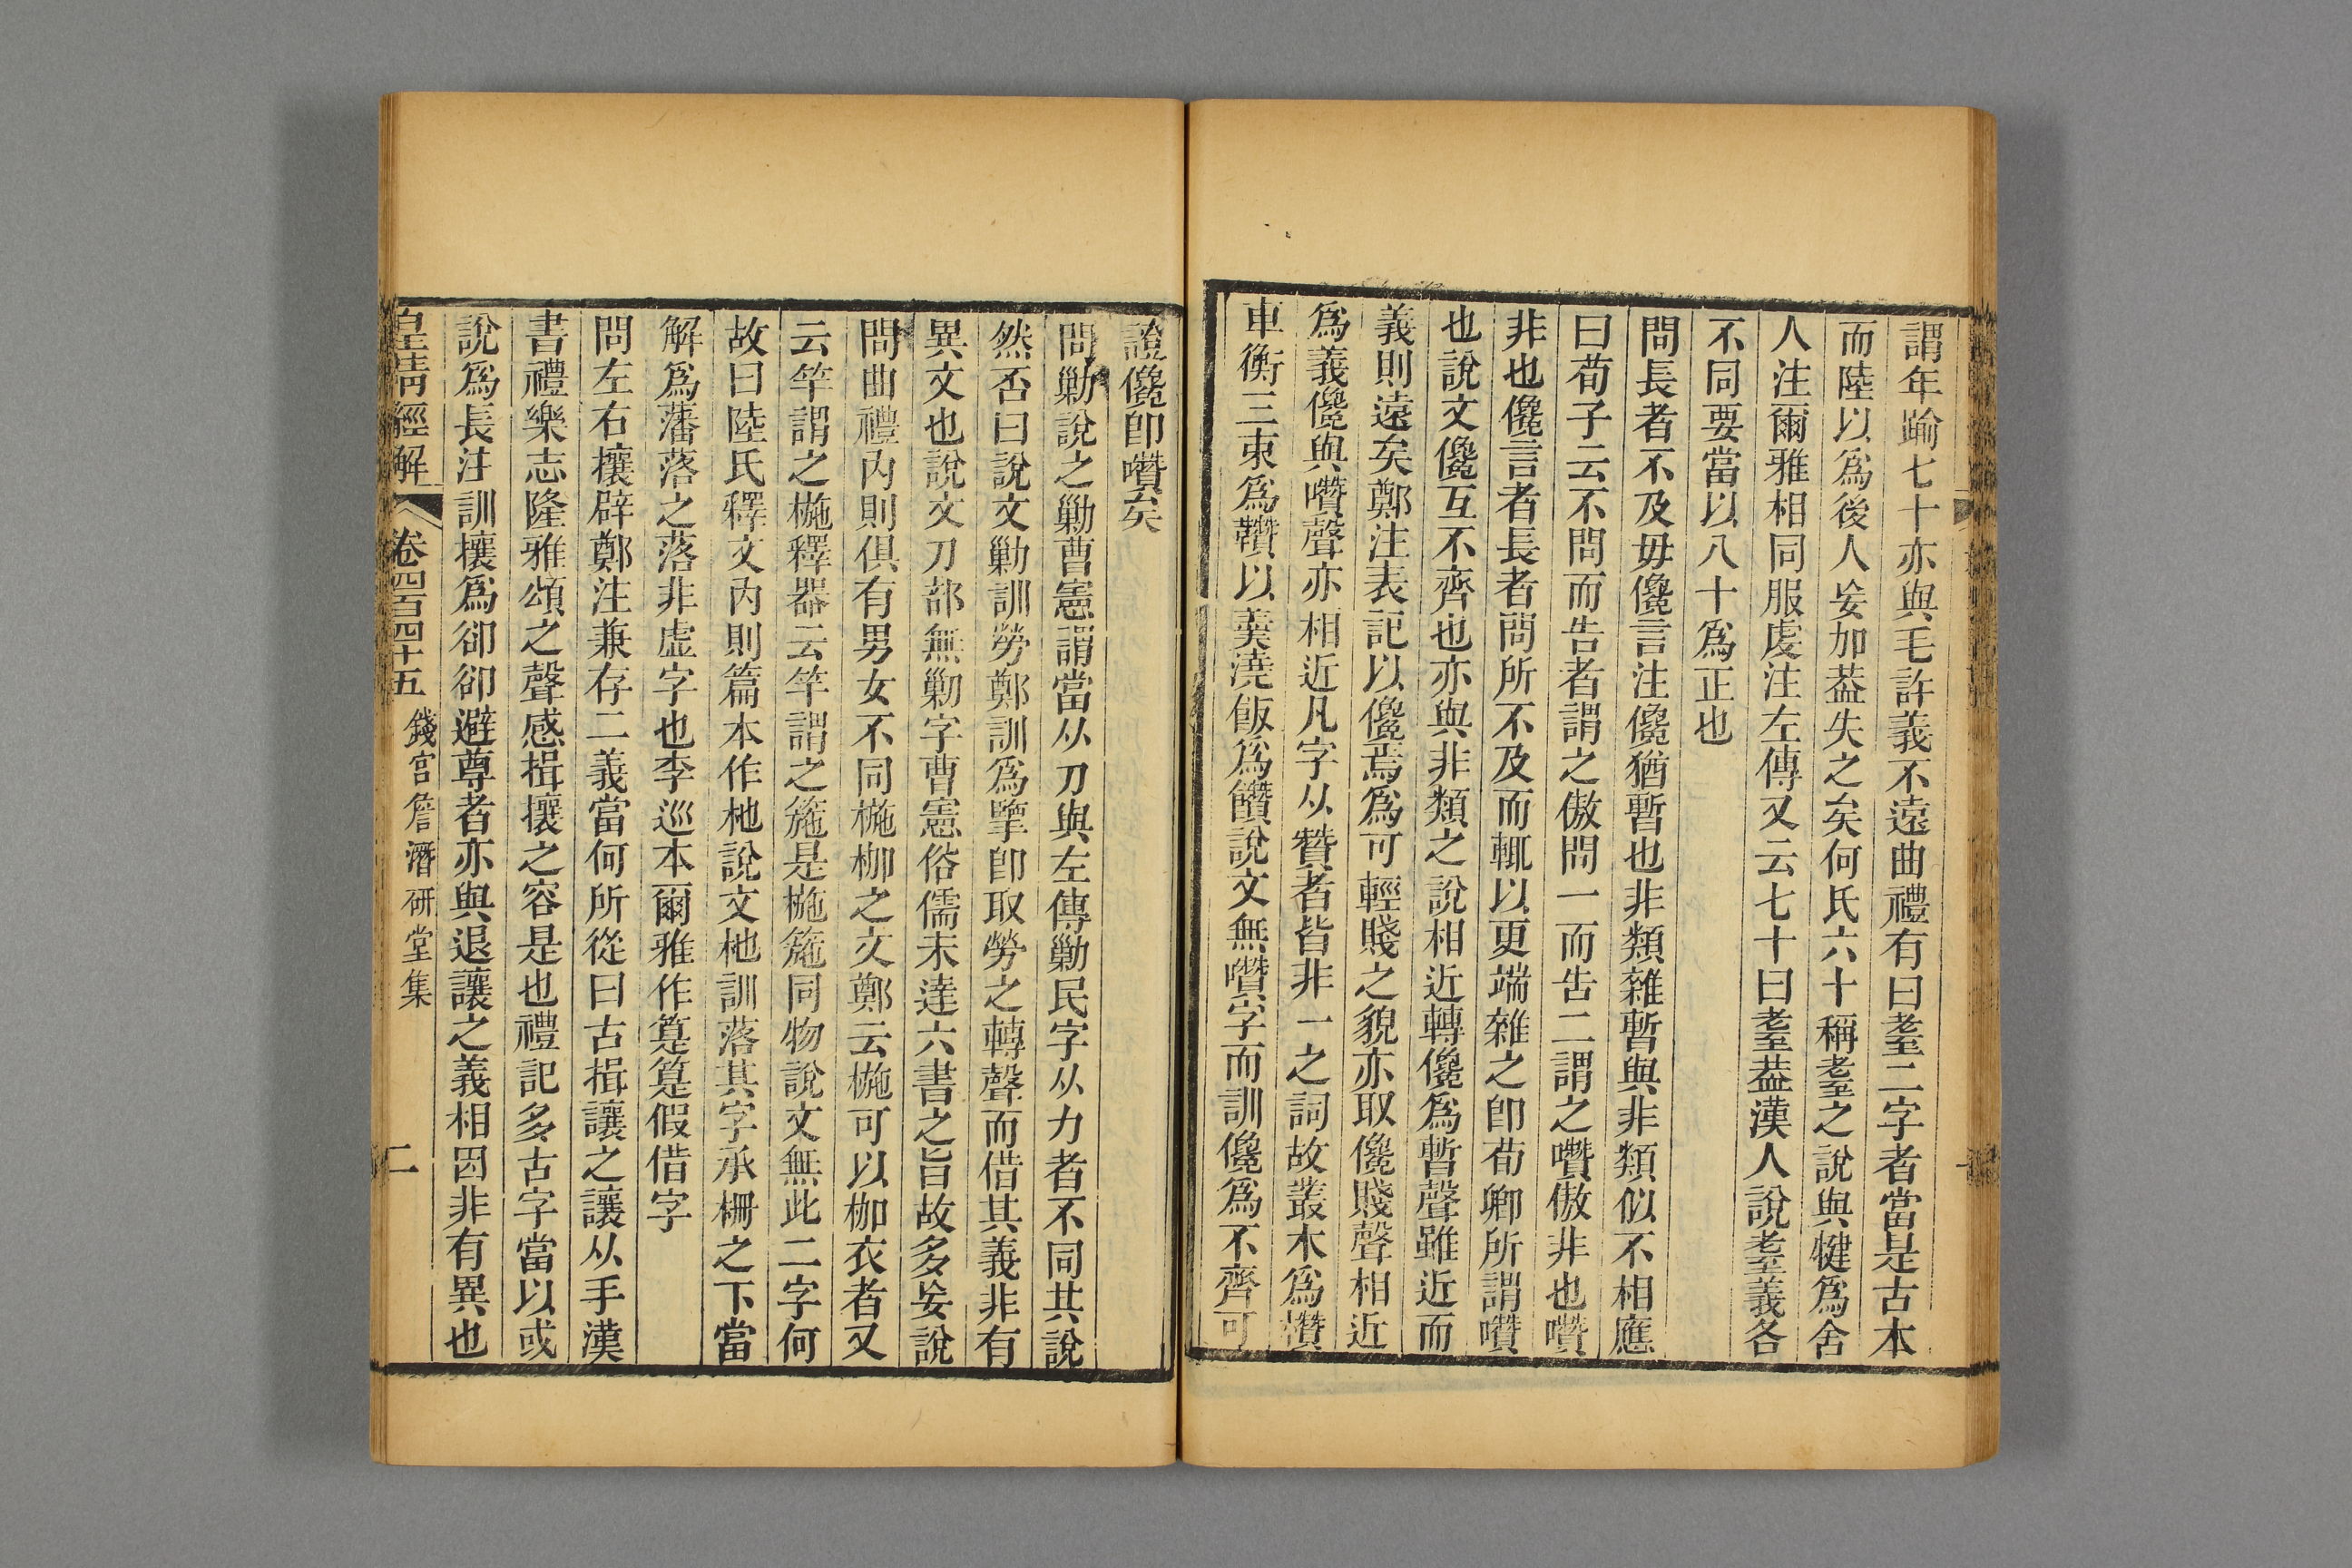 謂年踰七十亦與毛許義不遠曲禮有曰耋二字者當是古本
而陸以爲後人妄加葢失之矣何氏六十稱耋之說與犍爲舍
人注爾雅相同服虔注左傳又云七十曰耋葢漢人說耋義各
不同要當以八十爲正也
問長者不及毋儳言注儳猶暫也非類雜暫與非類似不相應
曰荀子云不問而告者謂之傲問一而告二謂之囋傲非也囋
非也儳言者長者問所不及而輒以更端雜之卽荀卿所謂囋
也說文儳互不齊也亦與非類之說相近轉儳爲暫聲雖近而
義則遠矣鄭注表記以儳焉爲可輕賤之貌亦取儳賤聲相近
爲義儳與囋聲亦相近凡字从贊者皆非一之詞故叢木爲欑
車衡三束爲䡽以羹澆飯爲饡說文無囋字而訓儳爲不齊可
證儳卽囋矣
問勦說之勦曹憲謂當从刀與左傳勦民字从力者不同其說
然否曰說文勦訓勞鄭訓爲擥卽取勞之轉聲而借其義非有
異文也說文刀部無剿字曹憲俗儒未達六書之旨故多妄說
問曲禮內則俱有男女不同椸枷之文鄭云椸可以枷衣者又
云竿謂之椸釋器云竿謂之箷是椸箷同物說文無此二字何
故曰陸氏釋文內則篇本作杝說文杝訓落其字承柵之下當
解爲藩落之落非虛字也李巡本爾雅作箟箟假借字
問左右攘辟鄭注兼存二義當何所從曰古揖讓之讓从手漢
書禮樂志隆雅頌之聲感揖攘之容是也禮記多古字當以或
說爲長注訓攘爲卻卻避尊者亦與退讓之義相因非有異也
皇淸經解 卷四百四十五 錢宮詹潛研堂集 二